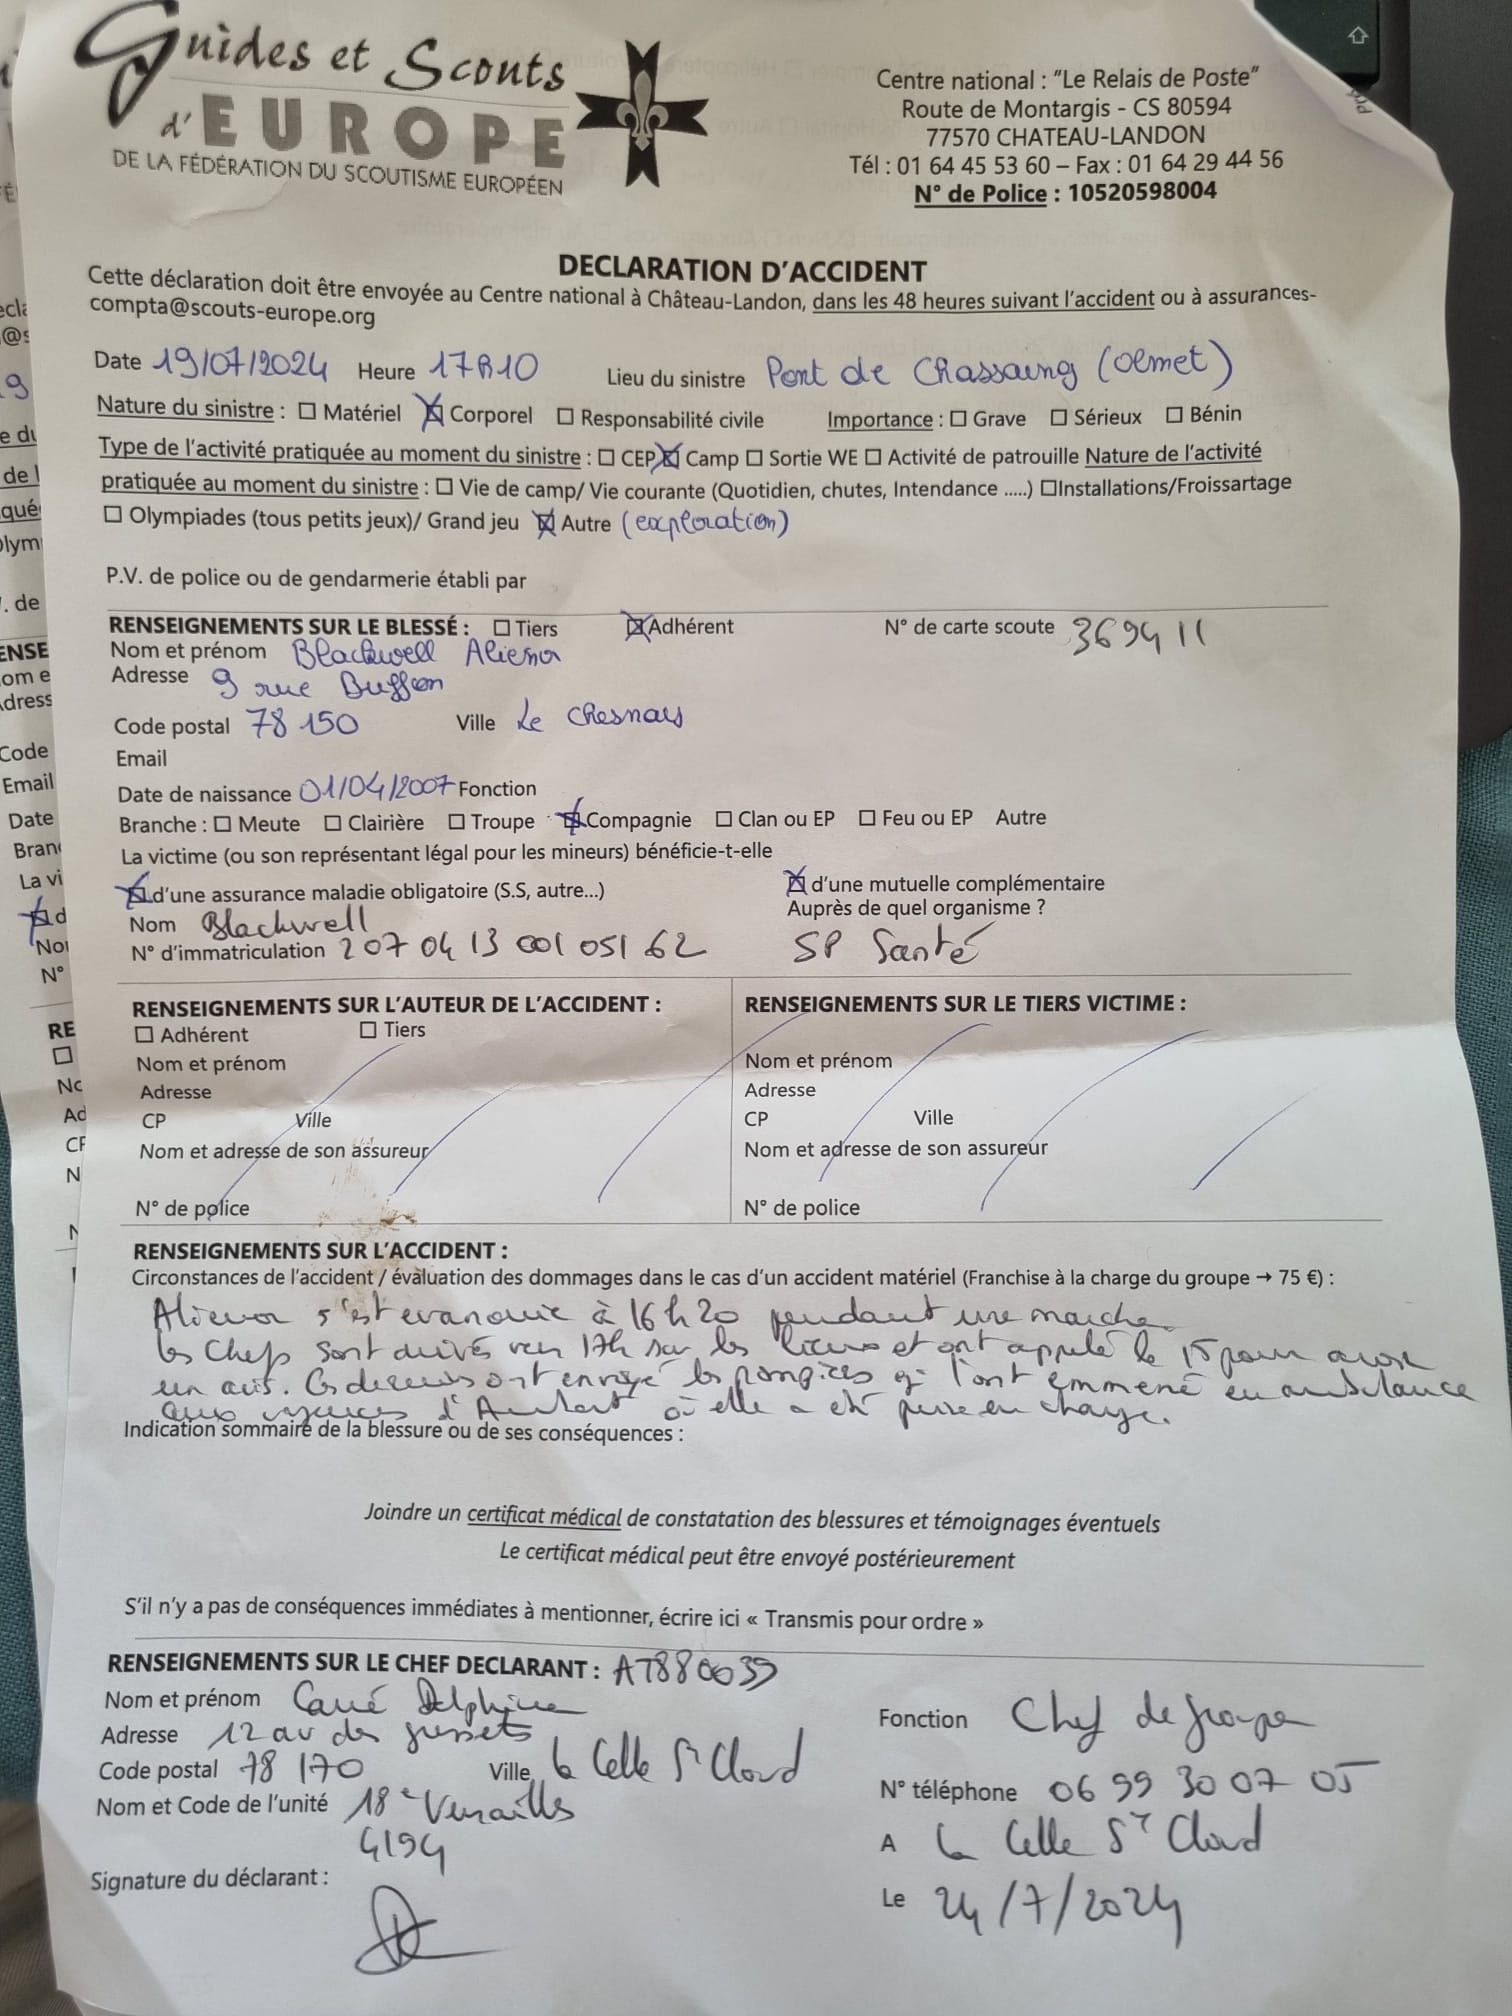 Guides et Scouts
d'EUROPE
DE LA FÉDÉRATION DU SCOUTISME EUROPÉEN
Centre national : "Le Relais de Poste"
Route de Montargis - CS 80594
77570 CHATEAU-LANDON
Tél : 01 64 45 53 60 – Fax : 01 64 29 44 56
N° de Police : 10520598004
DECLARATION D'ACCIDENT
Cette déclaration doit être envoyée au Centre national à Château-Landon, dans les 48 heures suivant l'accident ou à assurances-
compta@scouts-europe.org
Date 19/07/2024 Heure 17h10 Lieu du sinistre Pont de Chassaing (Olmet)
Nature du sinistre : ☐ Matériel ☒ Corporel ☐ Responsabilité civile Importance : ☐ Grave ☐ Sérieux ☐ Bénin
Type de l'activité pratiquée au moment du sinistre : ☐ CEP ☒ Camp ☐ Sortie WE ☐ Activité de patrouille Nature de l'activité
pratiquée au moment du sinistre : ☐ Vie de camp/ Vie courante (Quotidien, chutes, Intendance .....) ☐Installations/Froissartage
☐ Olympiades (tous petits jeux)/ Grand jeu ☒ Autre (exploration)
P.V. de police ou de gendarmerie établi par
RENSEIGNEMENTS SUR LE BLESSÉ : ☐ Tiers ☒Adhérent N° de carte scoute 369411
Nom et prénom Blackwell Alienor
Adresse 9 rue Buffon
Code postal 78 150 Ville Le Chesnay
Email
Date de naissance 01/04/2007 Fonction
Branche : ☐ Meute ☐ Clairière ☐ Troupe ☒Compagnie ☐ Clan ou EP ☐ Feu ou EP Autre
La victime (ou son représentant légal pour les mineurs) bénéficie-t-elle
☒d'une assurance maladie obligatoire (S.S, autre...) ☒ d'une mutuelle complémentaire
Nom Blackwell Auprès de quel organisme ?
N° d'immatriculation 2 07 04 13 001 051 62 SP Santé
RENSEIGNEMENTS SUR L'AUTEUR DE L'ACCIDENT :
☐ Adhérent ☐ Tiers
Nom et prénom
Adresse
CP Ville
Nom et adresse de son assureur
N° de police
RENSEIGNEMENTS SUR LE TIERS VICTIME :
Nom et prénom
Adresse
CP Ville
Nom et adresse de son assureur
N° de police
RENSEIGNEMENTS SUR L'ACCIDENT :
Circonstances de l'accident / évaluation des dommages dans le cas d'un accident matériel (Franchise à la charge du groupe → 75 €) :
Alienor s'est evanouie à 16h20 pendant une marche.
les Chefs sont arrivés vers 17h sur les lieux et ont appelé le 15 pour avoir
un avis. Ces derniers ont envoyé les pompiers qi l'ont emmené en ambulance
aux urgences d'Ambert où elle a été prise en charge.
Indication sommaire de la blessure ou de ses conséquences :
Joindre un certificat médical de constatation des blessures et témoignages éventuels
Le certificat médical peut être envoyé postérieurement
S'il n'y a pas de conséquences immédiates à mentionner, écrire ici « Transmis pour ordre »
RENSEIGNEMENTS SUR LE CHEF DECLARANT : AT880039
Nom et prénom Carré Delphine Fonction Chef de groupe
Adresse 12 av des gressets
Code postal 78 170 Ville la Celle St Cloud N° téléphone 06 99 30 07 05
Nom et Code de l'unité 18e Versailles
4194
A la Celle St Cloud
Signature du déclarant :
Le 24/7/2024